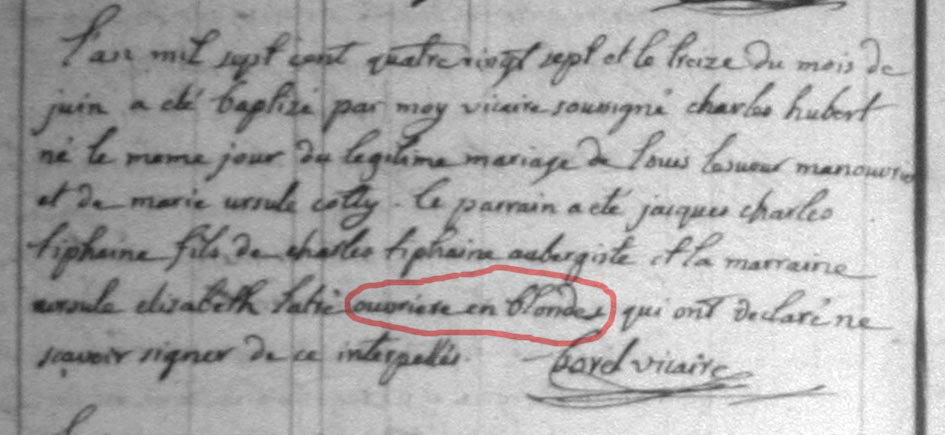 l'an mil sept cent quatre vingt sept et le treize du mois de
juin a eté baptizé par moy vicaire soussigné charles hubert
né le meme jour du legitime mariage de louis lesueur manouvrier
et de marie ursule cotty. le parrain a eté jacques charles
tiphaine fils de charles tiphaine aubergiste et la marraine
ursule elisabeth ouvriere en blondes qui ont declaré ne
sçavoir signer de ce interpellés. borel vicaire